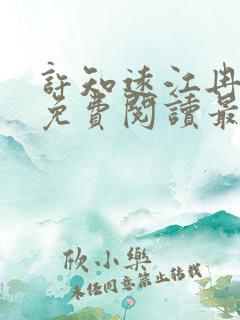 許知遠江冉
免費閱讀最
欣小樂
未經同意禁止轉載